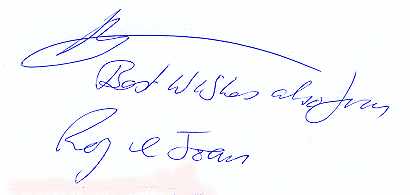 Best wishes also from
Roy & Joan